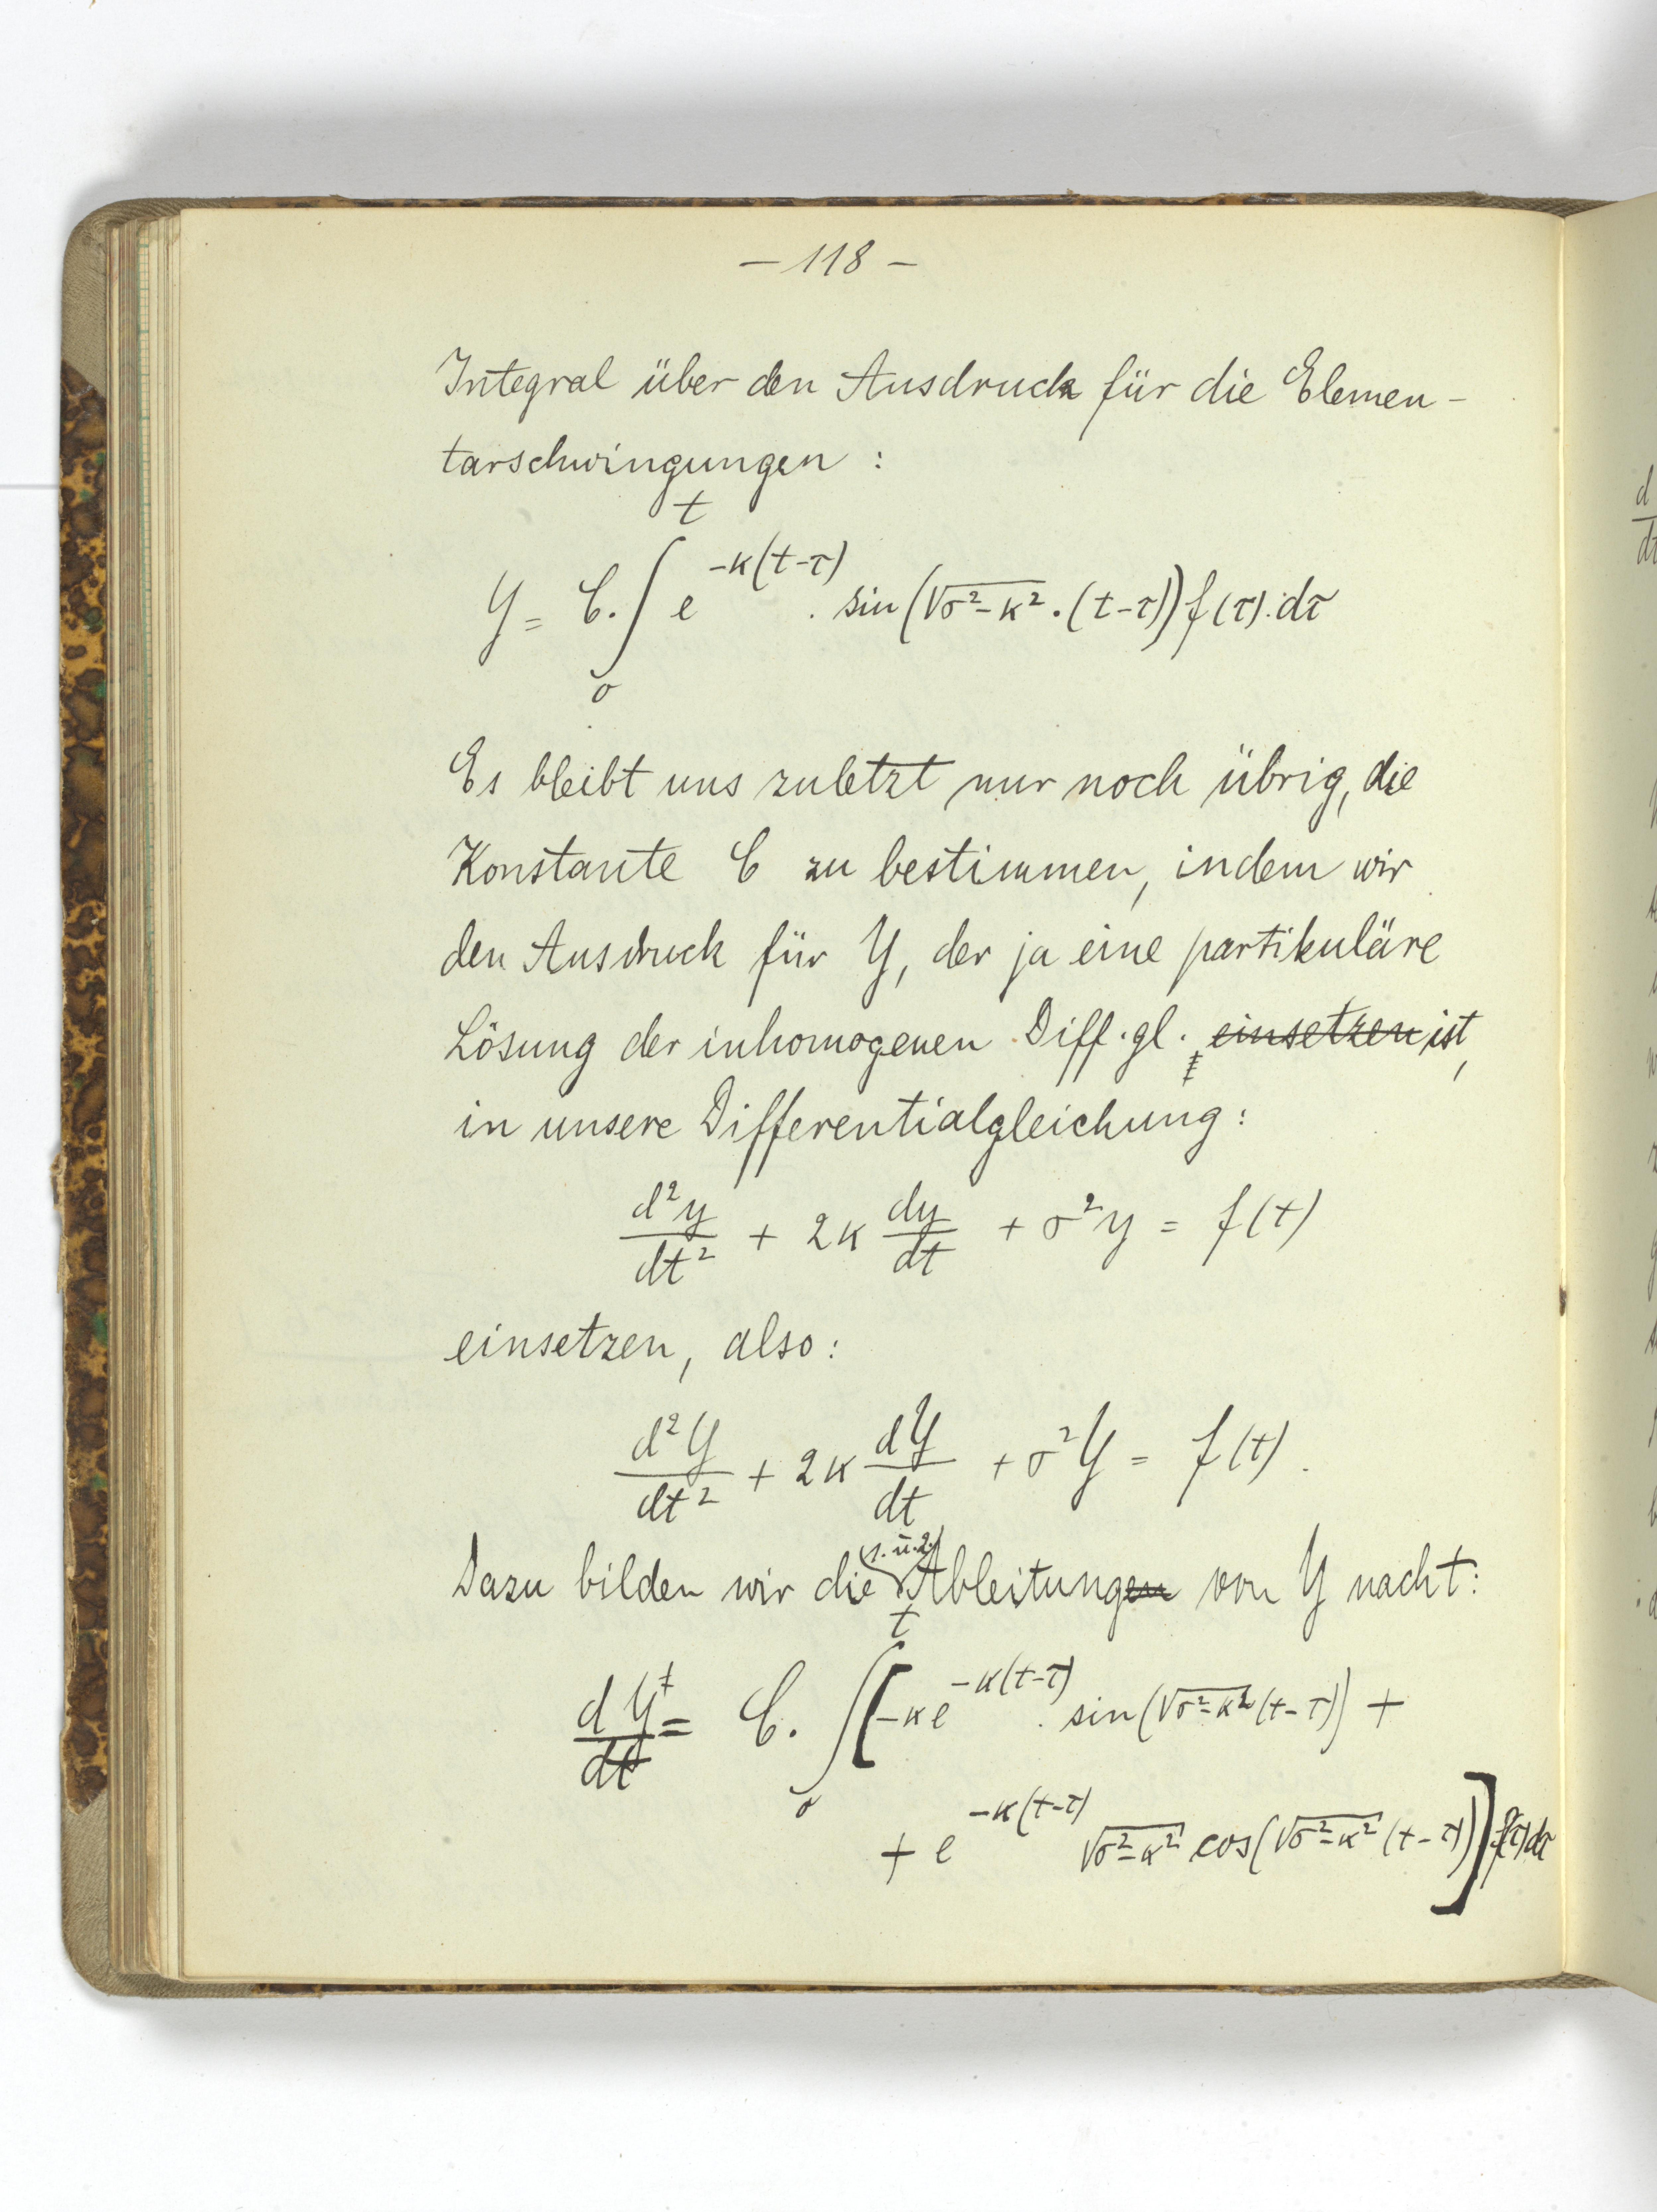 – 118 –
Integral über den Ausdruck für die Elemen-
tarschwingungen :
Y = C. ∫₀ᵗ e^{-κ(t-τ)} . sin(√(σ²-κ²) . (t-τ)) f(τ).dτ
Es bleibt uns zuletzt nur noch übrig, die
Konstante C zu bestimmen, indem wir
den Ausdruck für Y, der ja eine partikuläre
Lösung der inhomogenen Diff.gl. ~~einsetzen~~ ist,
in unsere Differentialgleichung:
d²y/dt² + 2κ dy/dt + σ²y = f(t)
einsetzen, also:
d²Y/dt² + 2κ dY/dt + σ²Y = f(t).
Dazu bilden wir die (1. u. 2.) Ableitung~~en~~ von Y nach t:
dY/dt = C. ∫₀ᵗ [-κe^{-κ(t-τ)} . sin(√(σ²-κ²)(t-τ)) +
+ e^{-κ(t-τ)} √(σ²-κ²) cos(√(σ²-κ²)(t-τ))] f(τ)dτ